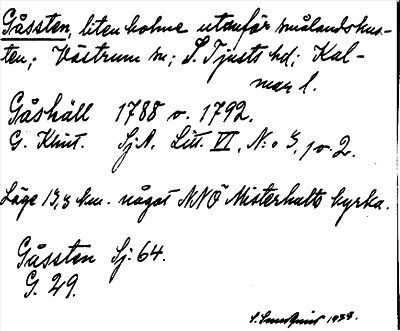 Gåssten, liten holme utanför smålandskus-
ten; Västrum sn; S. Tjusts hd; Kal-
mar l.
Gåshäll 1788 o. 1792.
G. Klint. Sj.A. Litt. VI, N:o 3, 2.
Läge 13,8 km. något NNÖ Misterhults kyrka.
Gåssten Sj: 64.
G. 29.
1933.